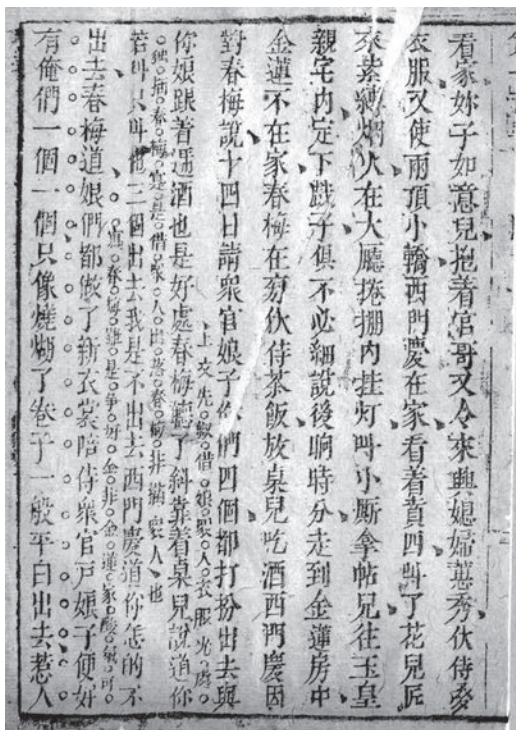 看家妳子如意兒抱着官哥又令來興媳婦蕙秀伏侍疊
衣服又使兩頂小轎西門慶在家看着賁四叫了花兒匠
來紮縛烟火在大廳捲棚內挂灯叫小厮拿帖兒往王皇
親宅內定下戲子俱不必細說後晌時分走到金蓮房中
金蓮不在家春梅在旁伏侍茶飯放桌兒吃酒西門慶因
對春梅說十四日請衆官娘子你們四個都打扮出去與
上文先敘借娘眼人衣服光
你娘跟着遞酒也是好處春梅聽了斜靠着桌兒說道你
獨寫春梅寔是借衆人出落春梅非滿衆人也
若叫只叫他三個出去我是不出去西門慶道你怎的不
寫春梅雖是爭好金非金蓮家酸氣可
出去春梅道娘們都做了新衣裳陪侍衆官戶娘子便好
有俺們一個一個只像燒煳了卷子一般平白出去惹人